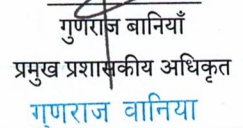 गुणराज बानियाँ
प्रमुख प्रशासकीय अधिकृत
गुणराज वानिया